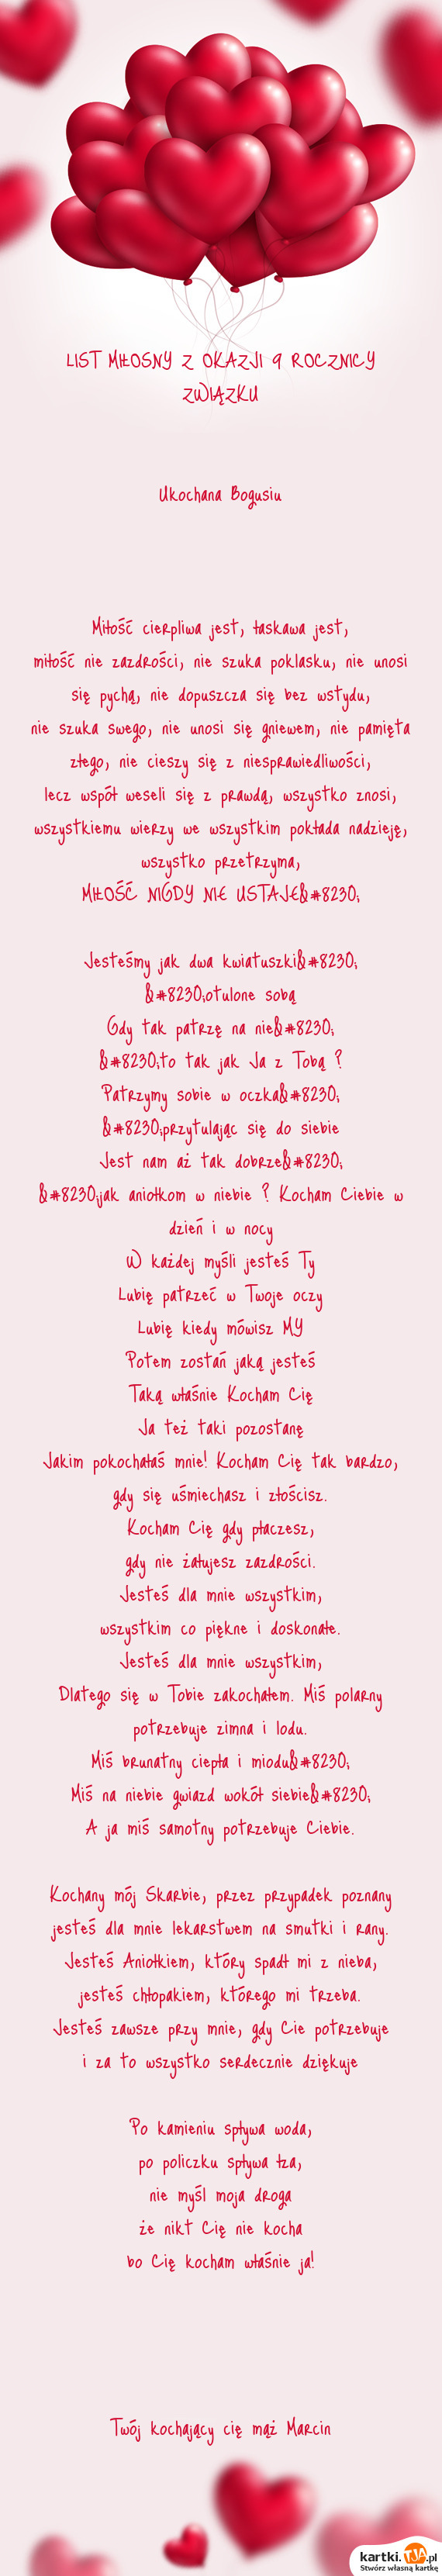 LIST MIŁOSNY Z OKAZJI 9 ROCZNICY
ZWIĄZKU
Ukochana Bogusiu
Miłość cierpliwa jest, łaskawa jest,
miłość nie zazdrości, nie szuka poklasku, nie unosi
się pychą, nie dopuszcza się bez wstydu,
nie szuka swego, nie unosi się gniewem, nie pamięta
złego, nie cieszy się z niesprawiedliwości,
lecz współ weseli się z prawdą, wszystko znosi,
wszystkiemu wierzy we wszystkim pokłada nadzieję,
wszystko przetrzyma,
MIŁOŚĆ NIGDY NIE USTAJE&#8230;
Jesteśmy jak dwa kwiatuszki&#8230;
&#8230;otulone sobą
Gdy tak patrzę na nie&#8230;
&#8230;to tak jak Ja z Tobą ?
Patrzymy sobie w oczka&#8230;
&#8230;przytulając się do siebie
Jest nam aż tak dobrze&#8230;
&#8230;jak aniołkom w niebie ? Kocham Ciebie w
dzień i w nocy
W każdej myśli jesteś Ty
Lubię patrzeć w Twoje oczy
Lubię kiedy mówisz MY
Potem zostań jaką jesteś
Taką właśnie Kocham Cię
Ja też taki pozostanę
Jakim pokochałaś mnie! Kocham Cię tak bardzo,
gdy się uśmiechasz i złościsz.
Kocham Cię gdy płaczesz,
gdy nie żałujesz zazdrości.
Jesteś dla mnie wszystkim,
wszystkim co piękne i doskonałe.
Jesteś dla mnie wszystkim,
Dlatego się w Tobie zakochałem. Miś polarny
potrzebuje zimna i lodu.
Miś brunatny ciepła i miodu&#8230;
Miś na niebie gwiazd wokół siebie&#8230;
A ja miś samotny potrzebuje Ciebie.
Kochany mój Skarbie, przez przypadek poznany
jesteś dla mnie lekarstwem na smutki i rany.
Jesteś Aniołkiem, który spadł mi z nieba,
jesteś chłopakiem, którego mi trzeba.
Jesteś zawsze przy mnie, gdy Cie potrzebuje
i za to wszystko serdecznie dziękuje
Po kamieniu spływa woda,
po policzku spływa łza,
nie myśl moja droga
że nikt Cię nie kocha
bo Cię kocham właśnie ja!
Twój kochający cię mąż Marcin
kartki.TJA.pl
Stwórz własną kartkę